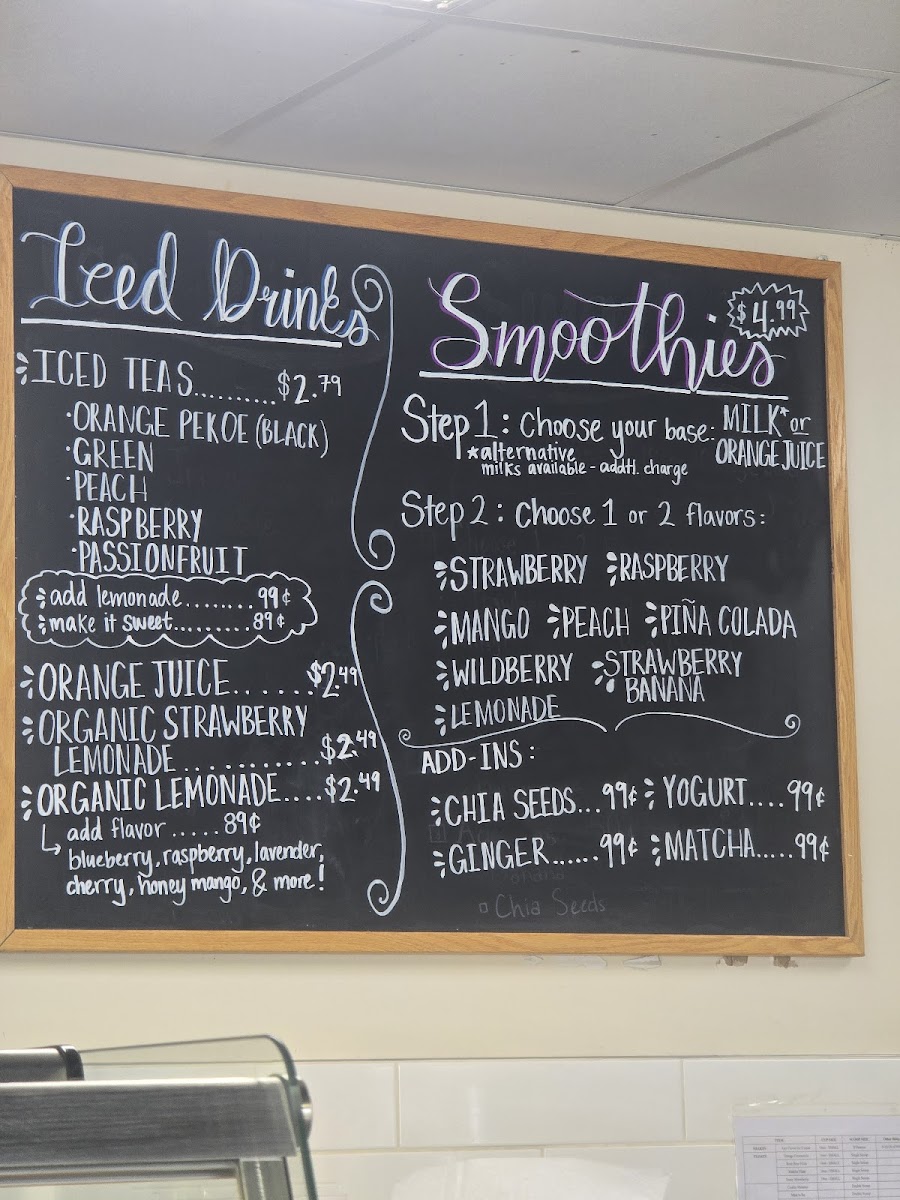 Iced Drinks
ICED TEAS..........$2.79
·ORANGE PEKOE (BLACK)
·GREEN
·PEACH
·RASPBERRY
·PASSIONFRUIT
add lemonade........99¢
make it sweet.........89¢
ORANGE JUICE......$2.49
ORGANIC STRAWBERRY
LEMONADE............$2.49
ORGANIC LEMONADE....$2.49
add flavor.....89¢
blueberry, raspberry, lavender,
cherry, honey mango, & more!
Smoothies
$4.99
Step 1: Choose your base: MILK* or
ORANGE JUICE
*alternative
milks available - addtl. charge
Step 2: Choose 1 or 2 flavors:
STRAWBERRY RASPBERRY
MANGO PEACH PIÑA COLADA
WILDBERRY STRAWBERRY
BANANA
LEMONADE
ADD-INS:
CHIA SEEDS...99¢ YOGURT....99¢
GINGER......99¢ MATCHA.....99¢
Chia Seeds